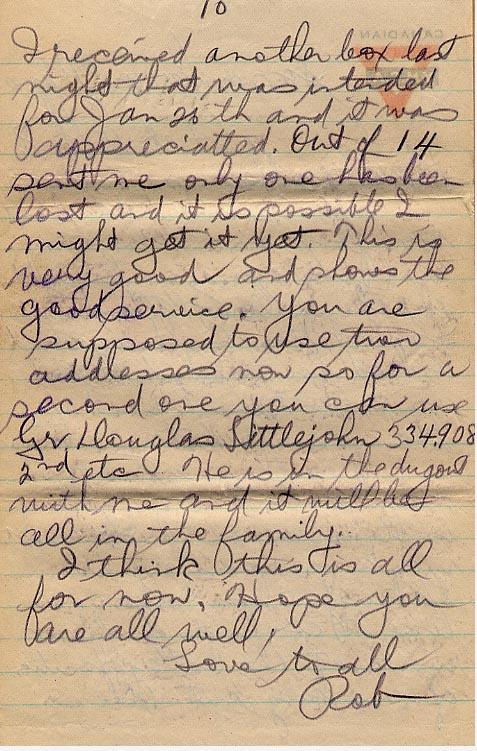 10
I received another box last
night that was intended
for Jan 26th and it was
appreciatted. Out of 14
sent me only one has been
lost and it is possible I
might get it yet. This is
very good and shows the
good service. You are
supposed to use two
addresses now so for a
second one you can use
Gr Douglas Littlejohn 334908
2nd etc He is in the dugout
with me and it will be
all in the family.
I think this is all
for now. Hope you
are all well,
Love to all
Rob
CANADIAN